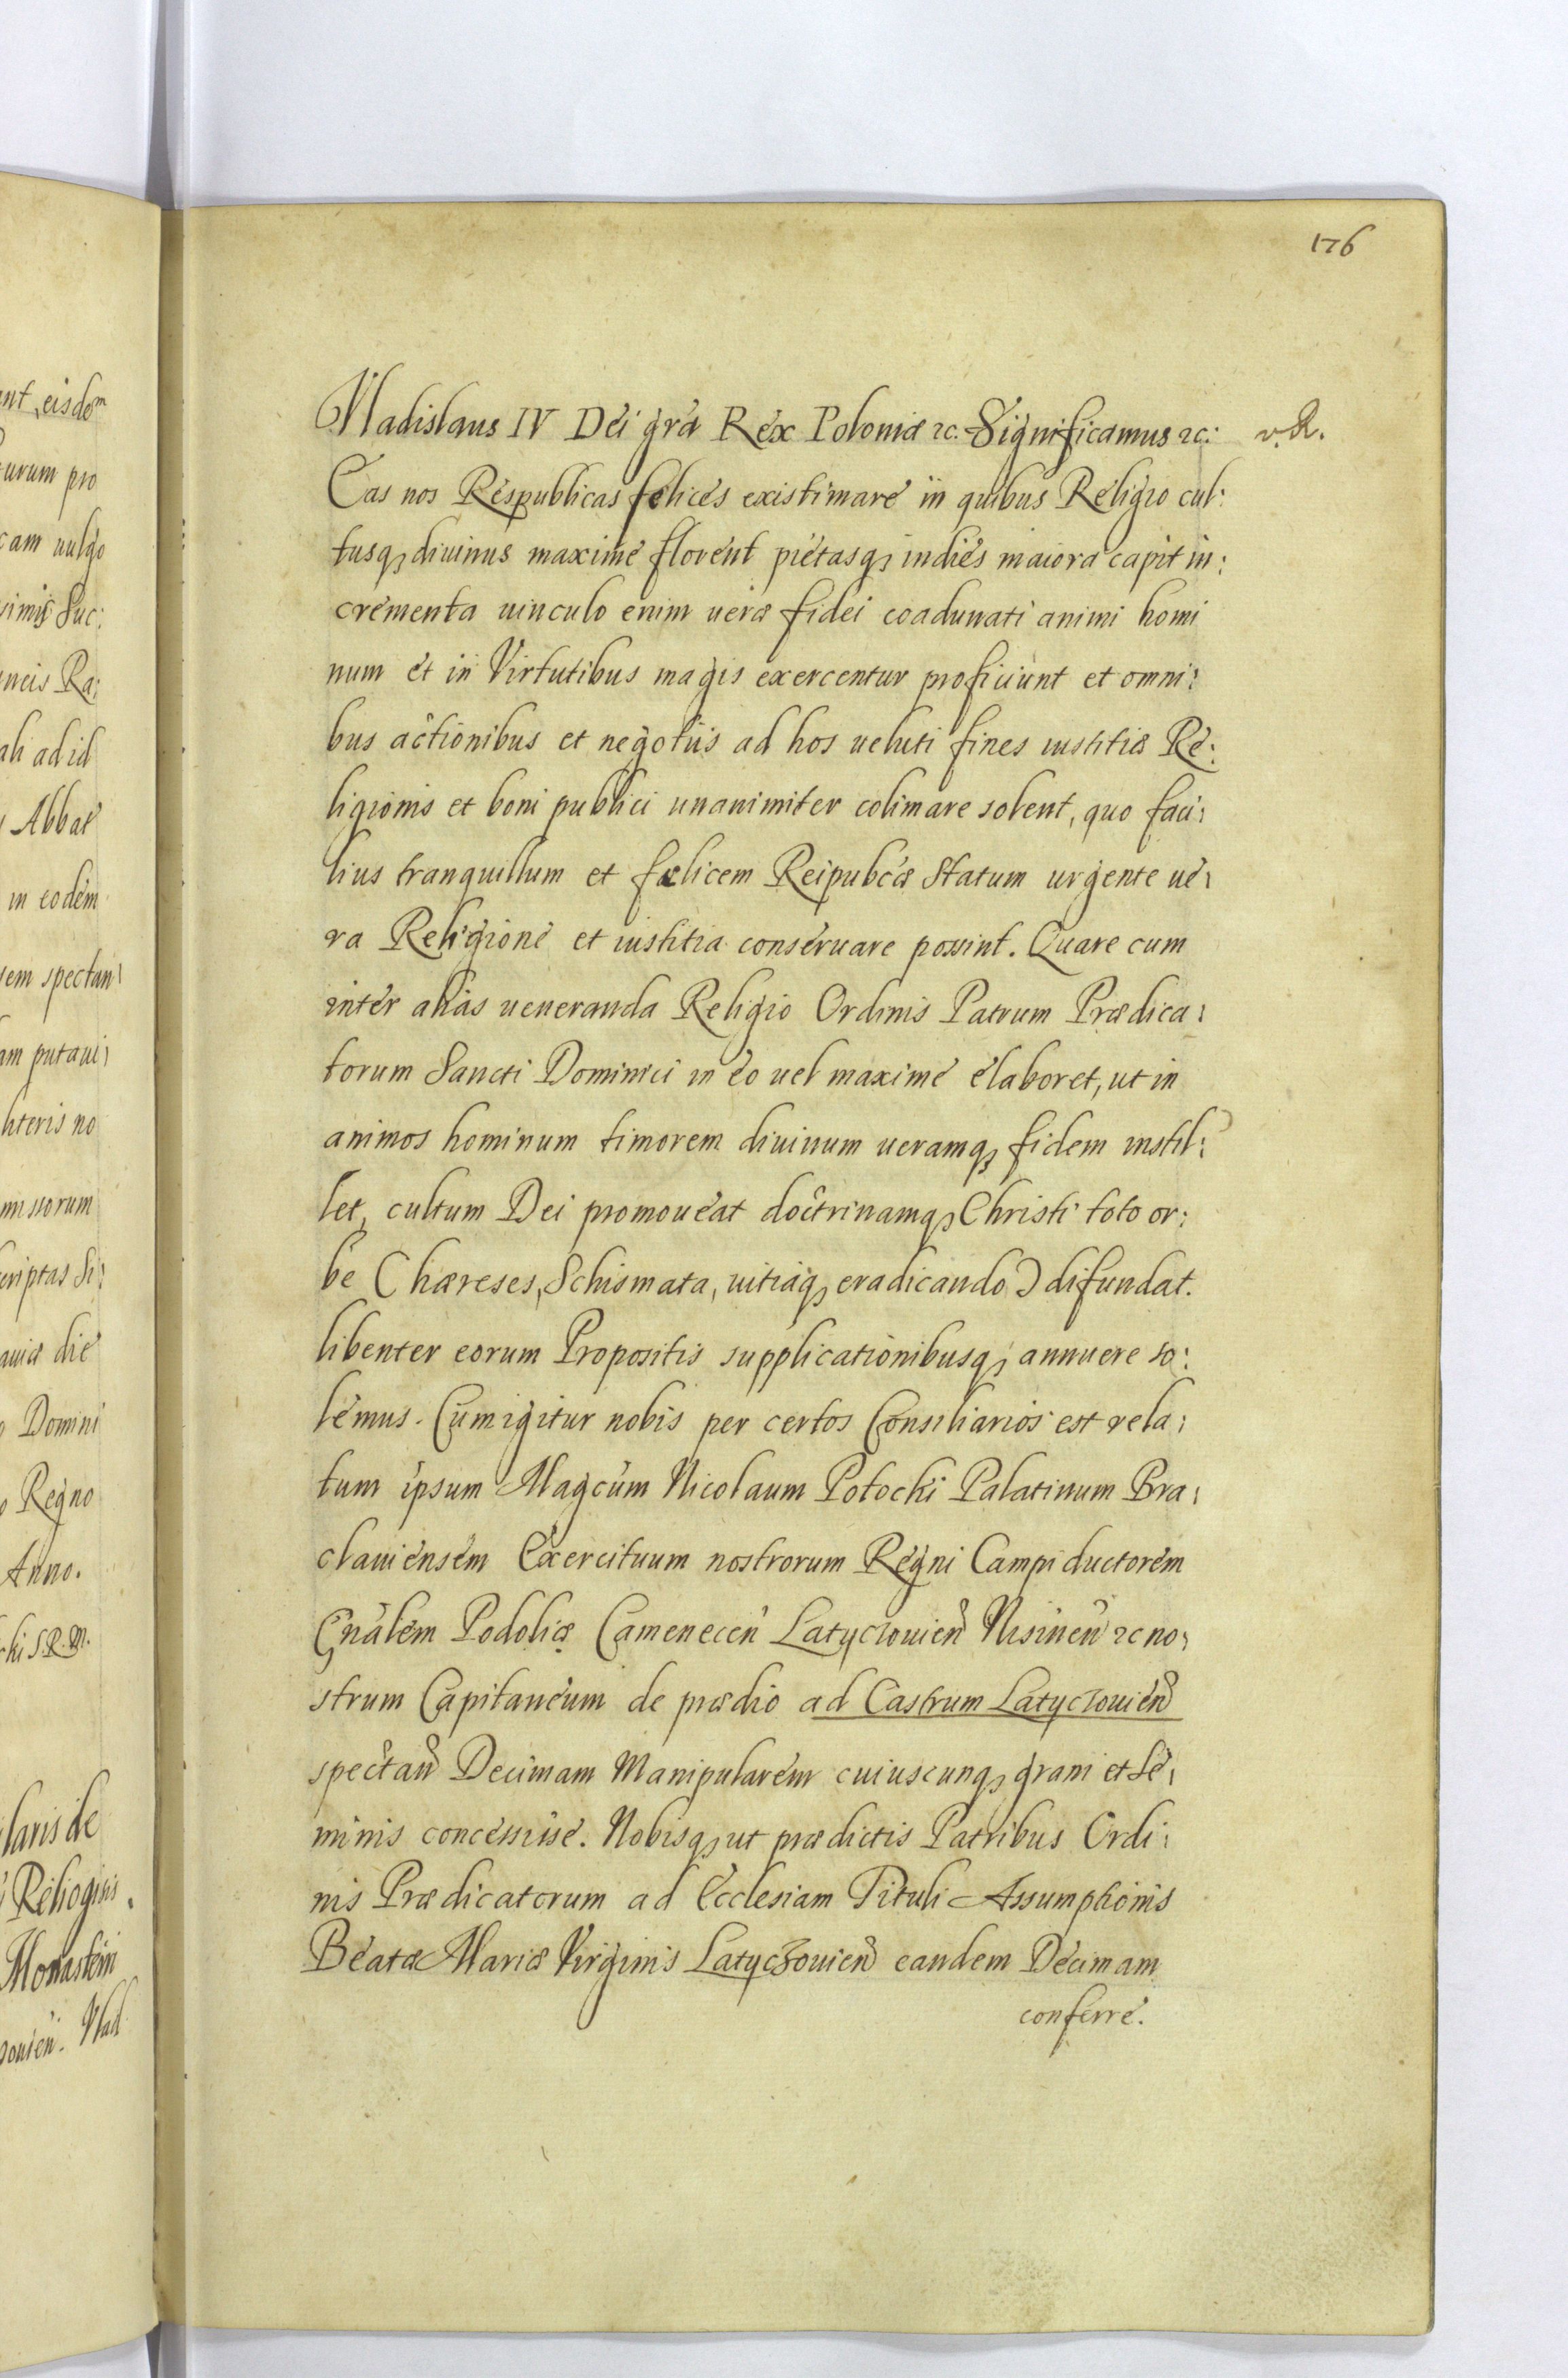 176
Vladislaus IV Dei grã Rex Poloniæ &c. Significamus &c: v. R.
Eas nos Respublicas felices existimare in quibus Religio cul:
tusq; diuinus maxime florent pietasq; indies maiora capit in:
crementa uinculo enim ueræ fidei coadunati animi homi
num et in Virtutibus magis exercentur proficiunt et omni:
bus actionibus et negotiis ad hos ueluti fines iustitiæ Re:
ligionis et boni publici unanimiter colimare solent, quo faci:
lius tranquillum et fælicem Reipubcæ Statum urgente ue:
ra Religione et iustitia conseruare possint. Quare cum
inter alias ueneranda Religio Ordinis Patrum Prædica:
torum Sancti Dominici in eo uel maxime elaboret, ut in
animos hominum timorem diuinum ueramq; fidem instil:
let, cultum Dei promoueat doctrinamq; Christi toto or:
be (hæreses, Schismata, uitiaq; eradicando) difundat.
libenter eorum Propositis supplicationibusq; annuere so:
lemus. Cum igitur nobis per certos Consiliarios est rela:
tum ipsum Magcum Nicolaum Potocki Palatinum Bra:
clauiensem Exercituum nostrorum Regni Campiductorem
Gnãlem Podoliæ Camenecen̄ Latyczouien̄ Nisinen̄ &c no:
strum Capitaneum de prædio ad Castrum Latyczouien̄
spectan̄ Decimam Manipularem cuiuscunq; grani et Se:
minis concessisse. Nobisq; ut prædictis Patribus Ordi:
nis Prædicatorum ad Ecclesiam Tituli Assumptionis
Beatæ Mariæ Virginis Latyczouien̄ eandem Decimam
conferre.